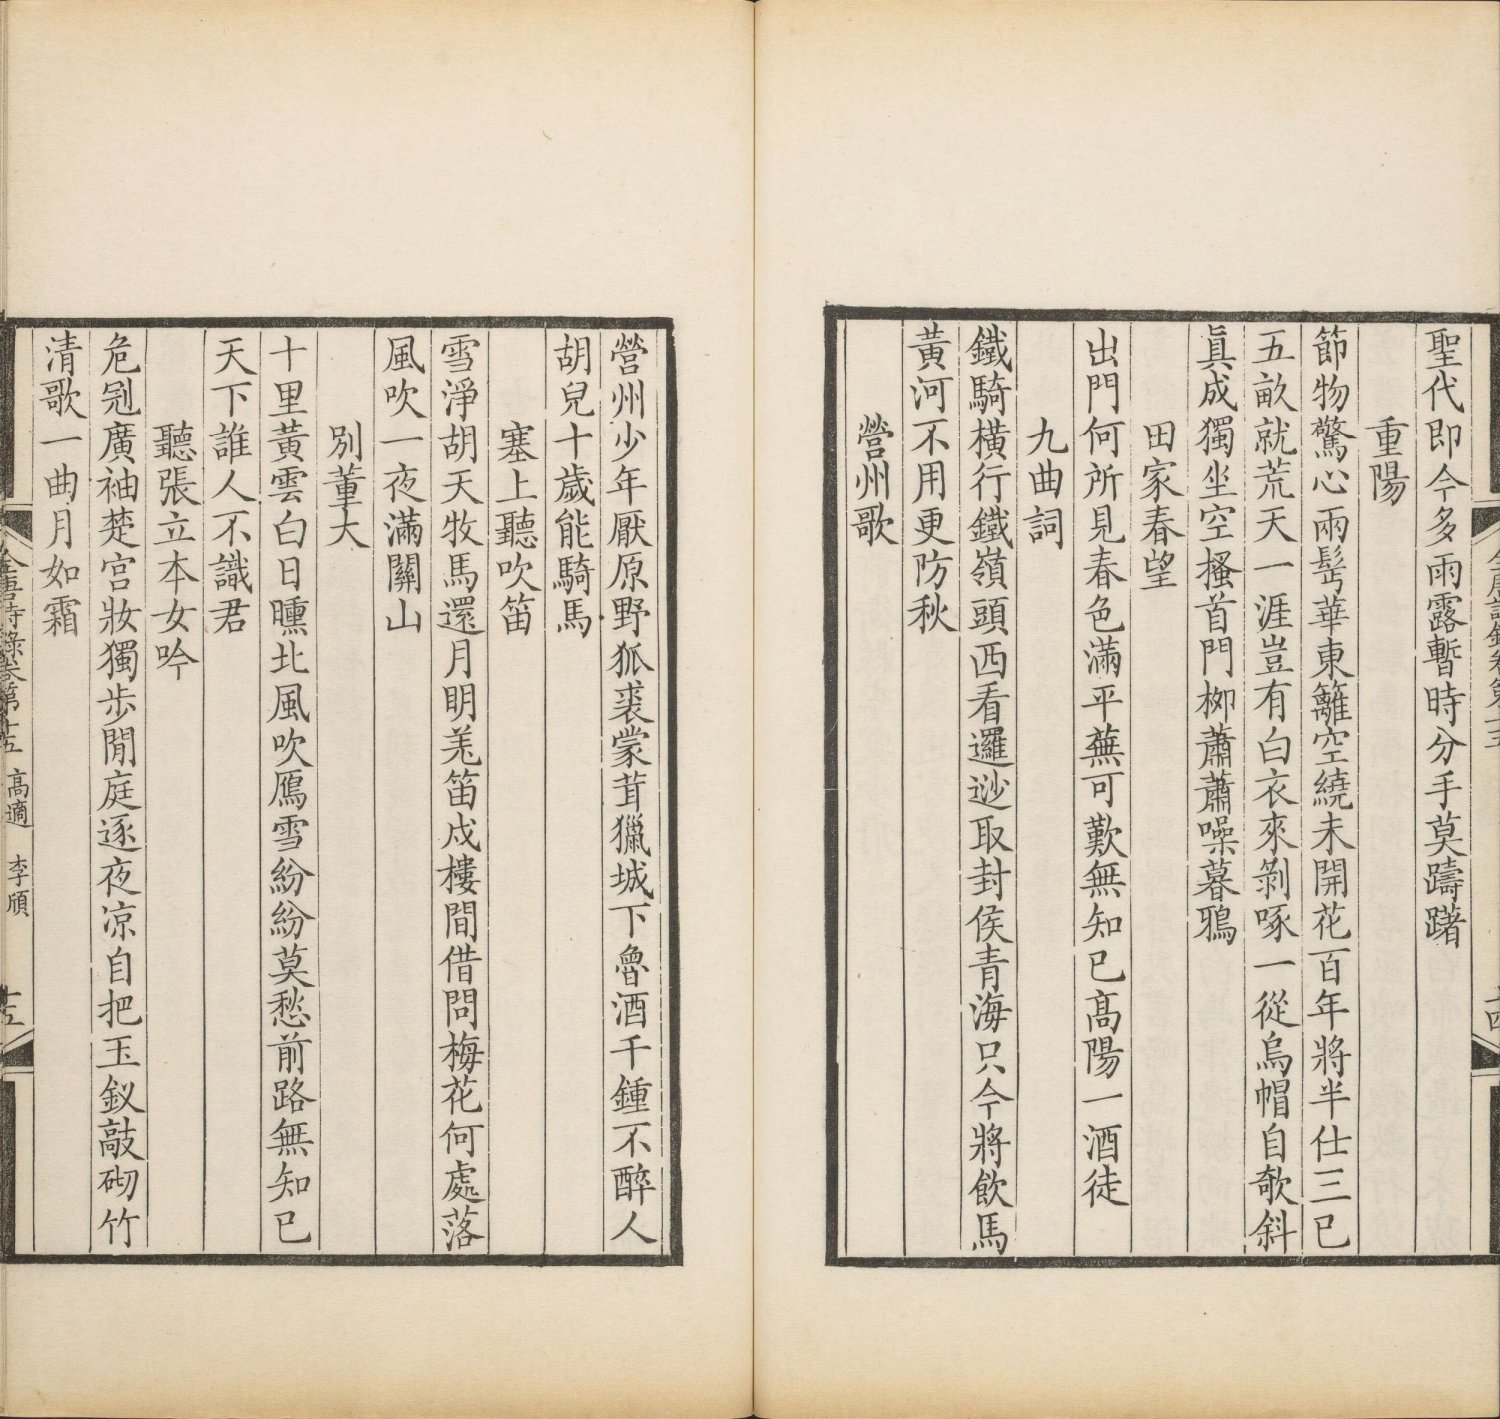 聖代即今多雨露暫時分手莫躊躇
重陽
節物驚心兩髩華東籬空繞未開花百年將半仕三已
五畝就荒天一涯豈有白衣來剝啄一從烏帽自欹斜
眞成獨坐空搔首門栁蕭蕭噪暮鴉
田家春望
出門何所見春色滿平蕪可歎無知已髙陽一酒徒
九曲詞
鐵騎橫行鐵嶺頭西看邏逤取封侯青海只今將飲馬
黃河不用更防秋
營州歌
營州少年厭原野狐裘蒙茸獵城下魯酒千鍾不醉人
胡兒十歲能騎馬
塞上聽吹笛
雪淨胡天牧馬還月明羌笛戍樓間借問梅花何處落
風吹一夜滿關山
別董大
十里黃雲白日曛北風吹鴈雪紛紛莫愁前路無知已
天下誰人不識君
聽張立本女吟
危冠廣袖楚宮妝獨步閒庭逐夜凉自把玉釵敲砌竹
清歌一曲月如霜
全唐詩錄卷第十五 髙適 李頎 十五